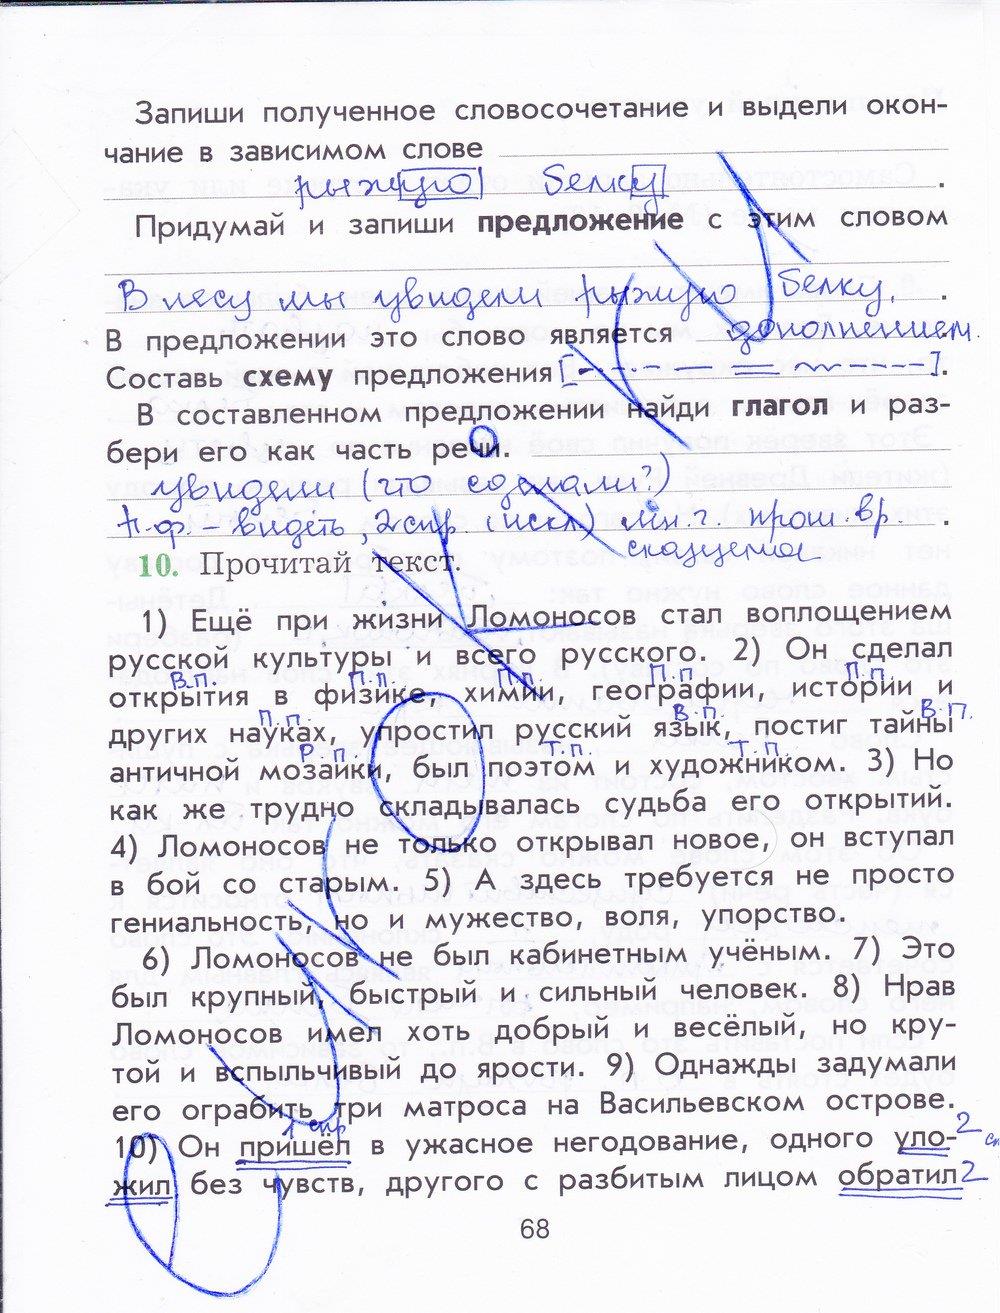 Запиши полученное словосочетание и выдели окон-
чание в зависимом слове
рыжую белку .
Придумай и запиши предложение с этим словом
В лесу мы увидели рыжую белку. .
В предложении это слово является дополнением.
Составь схему предложения [ ].
В составленном предложении найди глагол и раз-
бери его как часть речи.
увидели (что сделали?)
н.ф. – видеть, 2 спр. (искл) мн.ч. прош. вр. .
сказуемое
10. Прочитай текст.
1) Ещё при жизни Ломоносов стал воплощением
русской культуры и всего русского. 2) Он сделал
В.п. П.п. П.п. П.п. П.п.
открытия в физике, химии, географии, истории и
П.п. В.п. В.п.
других науках, упростил русский язык, постиг тайны
Р.п. Т.п. Т.п.
античной мозаики, был поэтом и художником. 3) Но
как же трудно складывалась судьба его открытий.
4) Ломоносов не только открывал новое, он вступал
в бой со старым. 5) А здесь требуется не просто
гениальность, но и мужество, воля, упорство.
6) Ломоносов не был кабинетным учёным. 7) Это
был крупный, быстрый и сильный человек. 8) Нрав
Ломоносов имел хоть добрый и весёлый, но кру-
той и вспыльчивый до ярости. 9) Однажды задумали
его ограбить три матроса на Васильевском острове.
1 спр 2
10) Он пришёл в ужасное негодование, одного уло-
жил без чувств, другого с разбитым лицом обратил 2
68